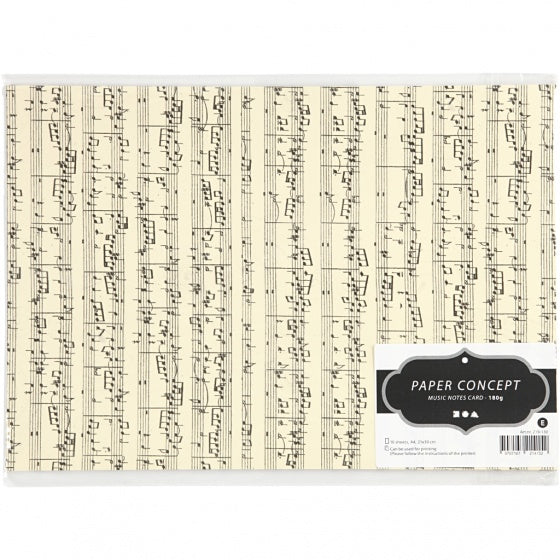 PAPER CONCEPT
MUSIC NOTES CARD - 180g
10 sheets, A4, 21x30 cm
Can be used for printing
(Please follow the instructions of the printer)
E